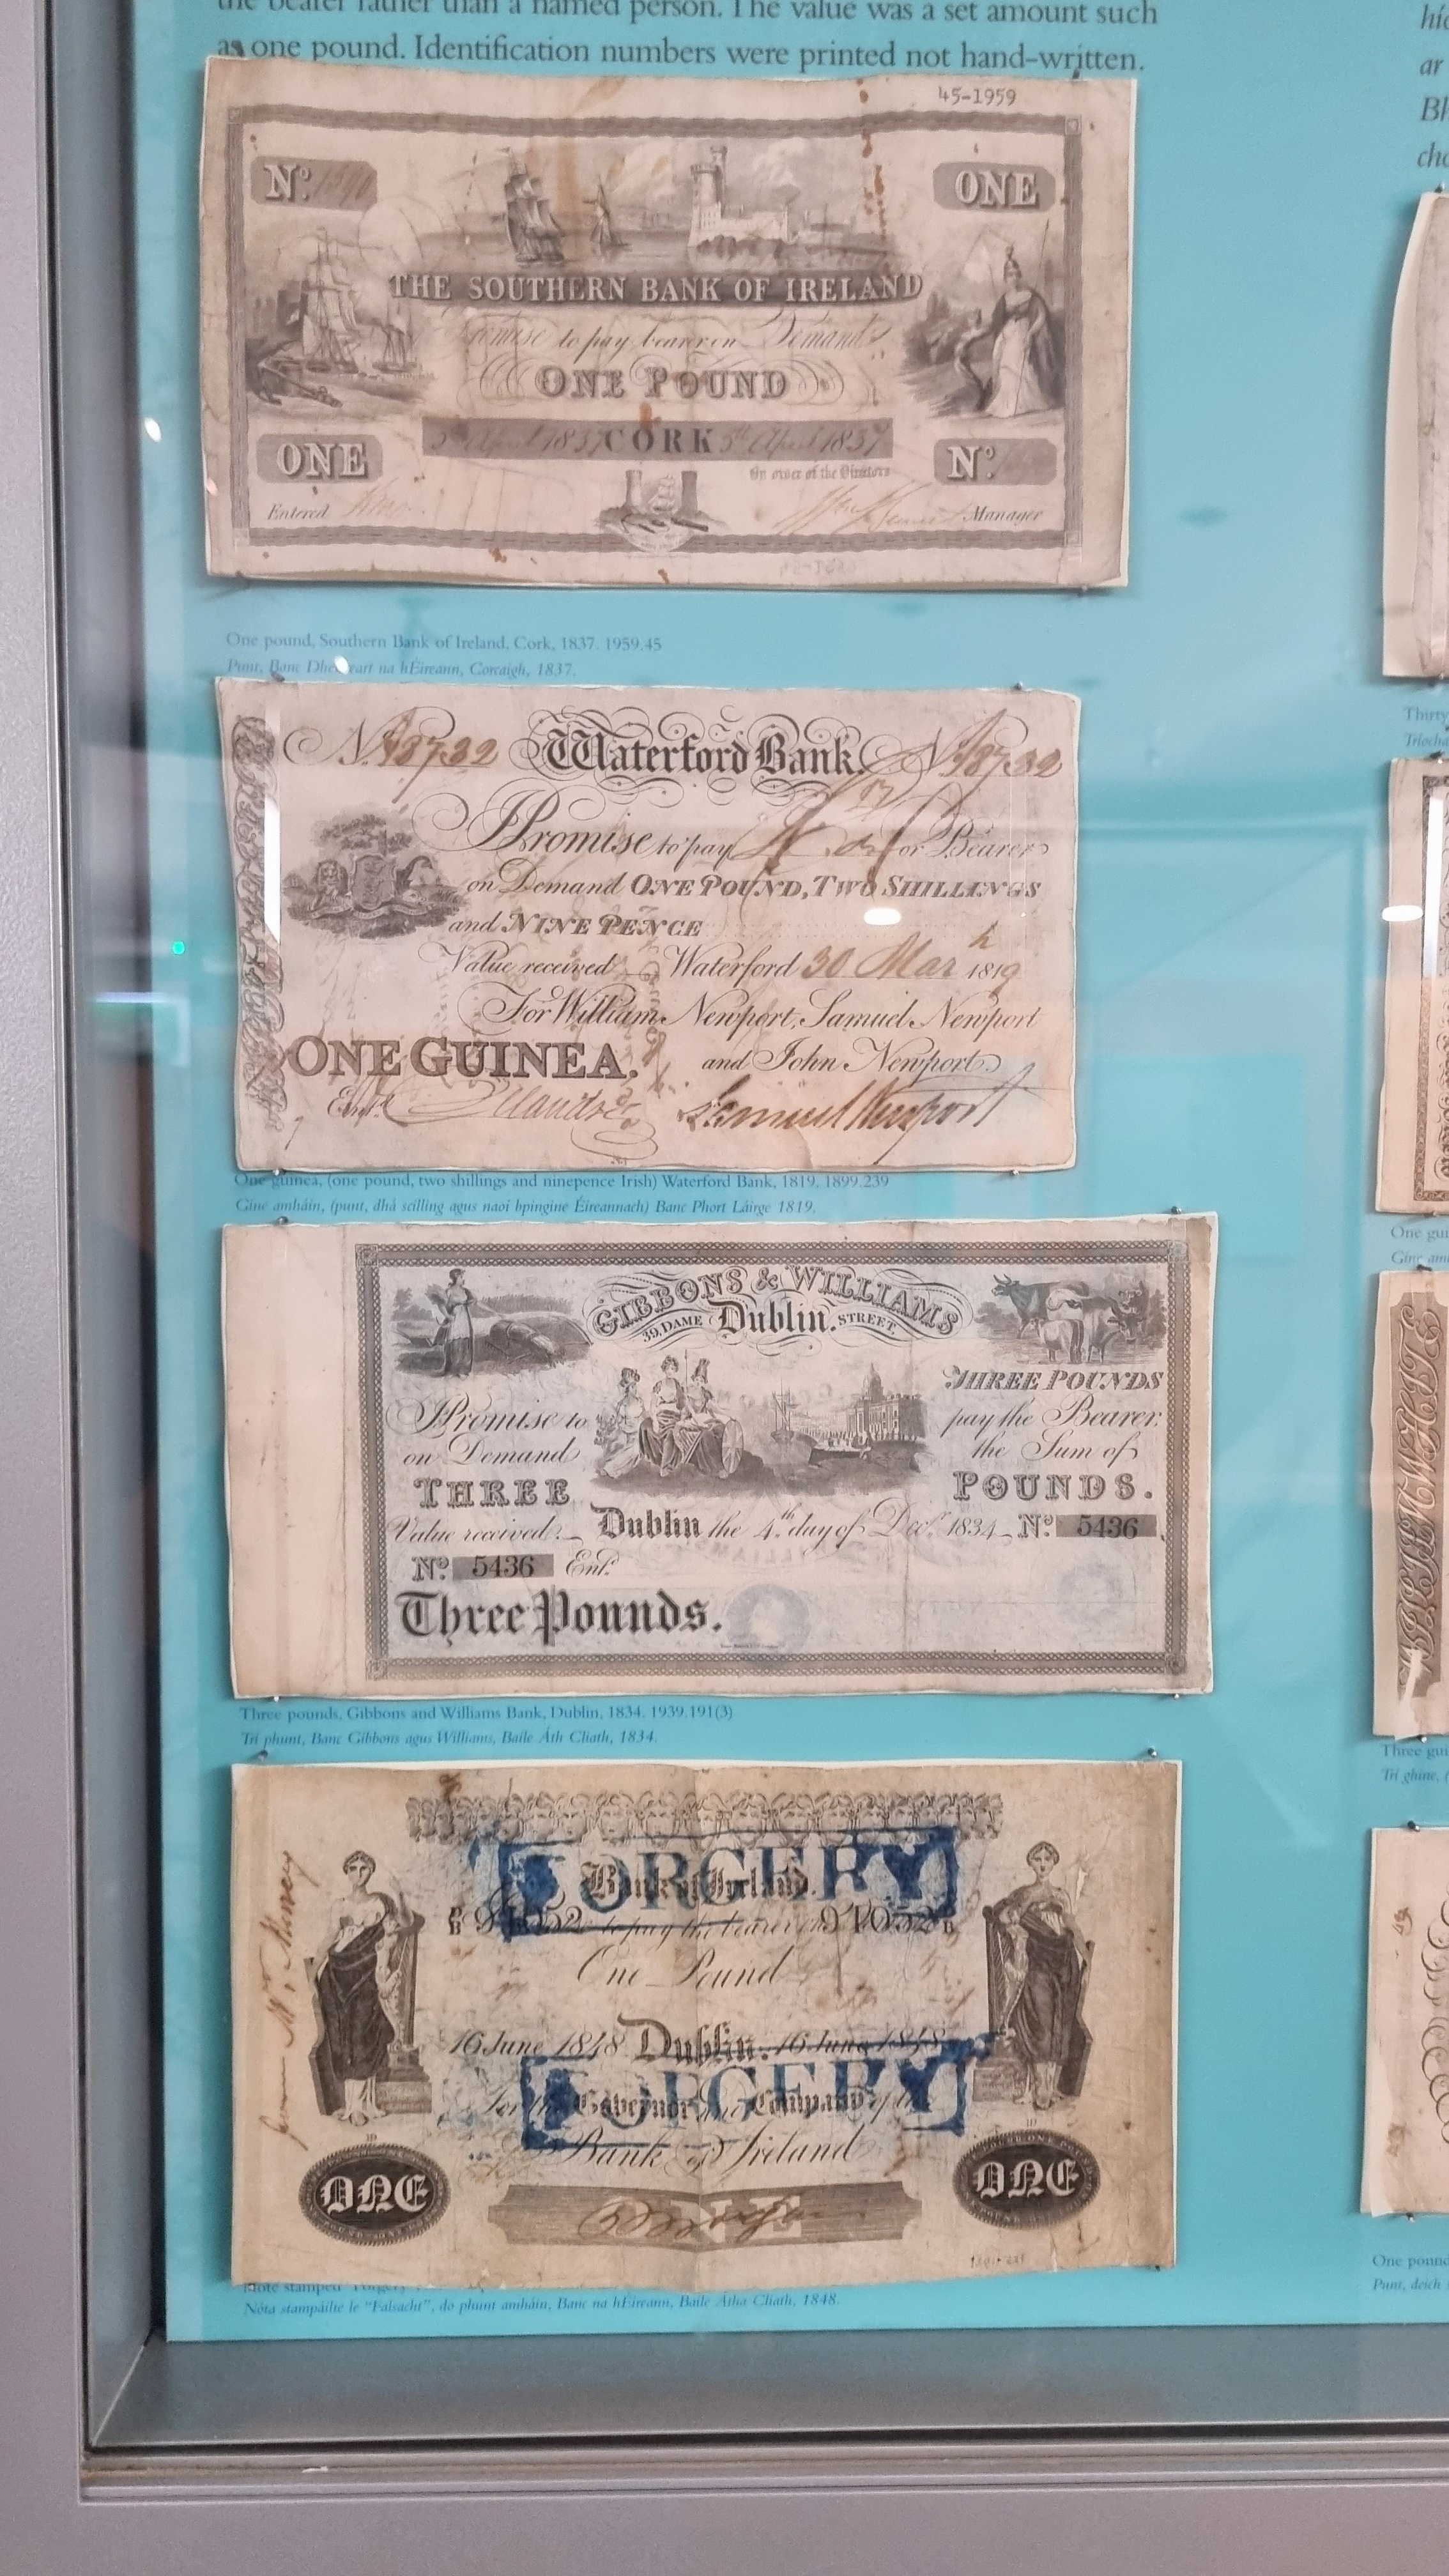 the bearer rather than a named person. The value was a set amount such
as one pound. Identification numbers were printed not hand-written.
45-1959
Nº.
ONE
THE SOUTHERN BANK OF IRELAND
Promise to pay bearer on Demand
ONE POUND
April 1837 CORK 5th April 1837
By order of the Directors
ONE
Nº.
Entered
Manager
One pound, Southern Bank of Ireland, Cork, 1837. 1959.45
Punt, Banc Dheisceart na hÉireann, Corcaigh, 1837.
Nº. 18732 Waterford Bank. Nº. 18732
I Promise to pay or Bearer
on Demand ONE POUND, TWO SHILLINGS
and NINE PENCE
Value received Waterford 30 Mar h 1819
For William Newport, Samuel Newport
ONE GUINEA. and John Newport
Entd. Samuel Newport
One guinea, (one pound, two shillings and ninepence Irish) Waterford Bank, 1819. 1899.239
Gine amháin, (punt, dhá scilling agus naoi bpingine Éireannach) Banc Phort Láirge 1819.
GIBBONS & WILLIAMS
39, DAME Dublin. STREET.
THREE POUNDS
I Promise to pay the Bearer,
on Demand the Sum of
THREE POUNDS.
Value received. Dublin the 4th day of Decr. 1834 Nº. 5436
Nº. 5436 Entd.
Three Pounds.
Three pounds, Gibbons and Williams Bank, Dublin, 1834. 1939.191(3)
Trí phunt, Banc Gibbons agus Williams, Baile Átha Cliath, 1834.
FORGERY
Bank of Ireland.
to pay the bearer on 91052
One Pound
16 June 1848 Dublin. 16 June 1848
FORGERY
For the Governor and Company of the
Bank of Ireland
ONE
ONE
ONE
Note stamped "Forgery
Nóta stampáilte le "Falsacht", do phunt amháin, Banc na hÉireann, Baile Átha Cliath, 1848.
ar
Thirty
Triocha
One gui
Gine am
Three gui
Trí ghine, (
One pound
Punt, deich